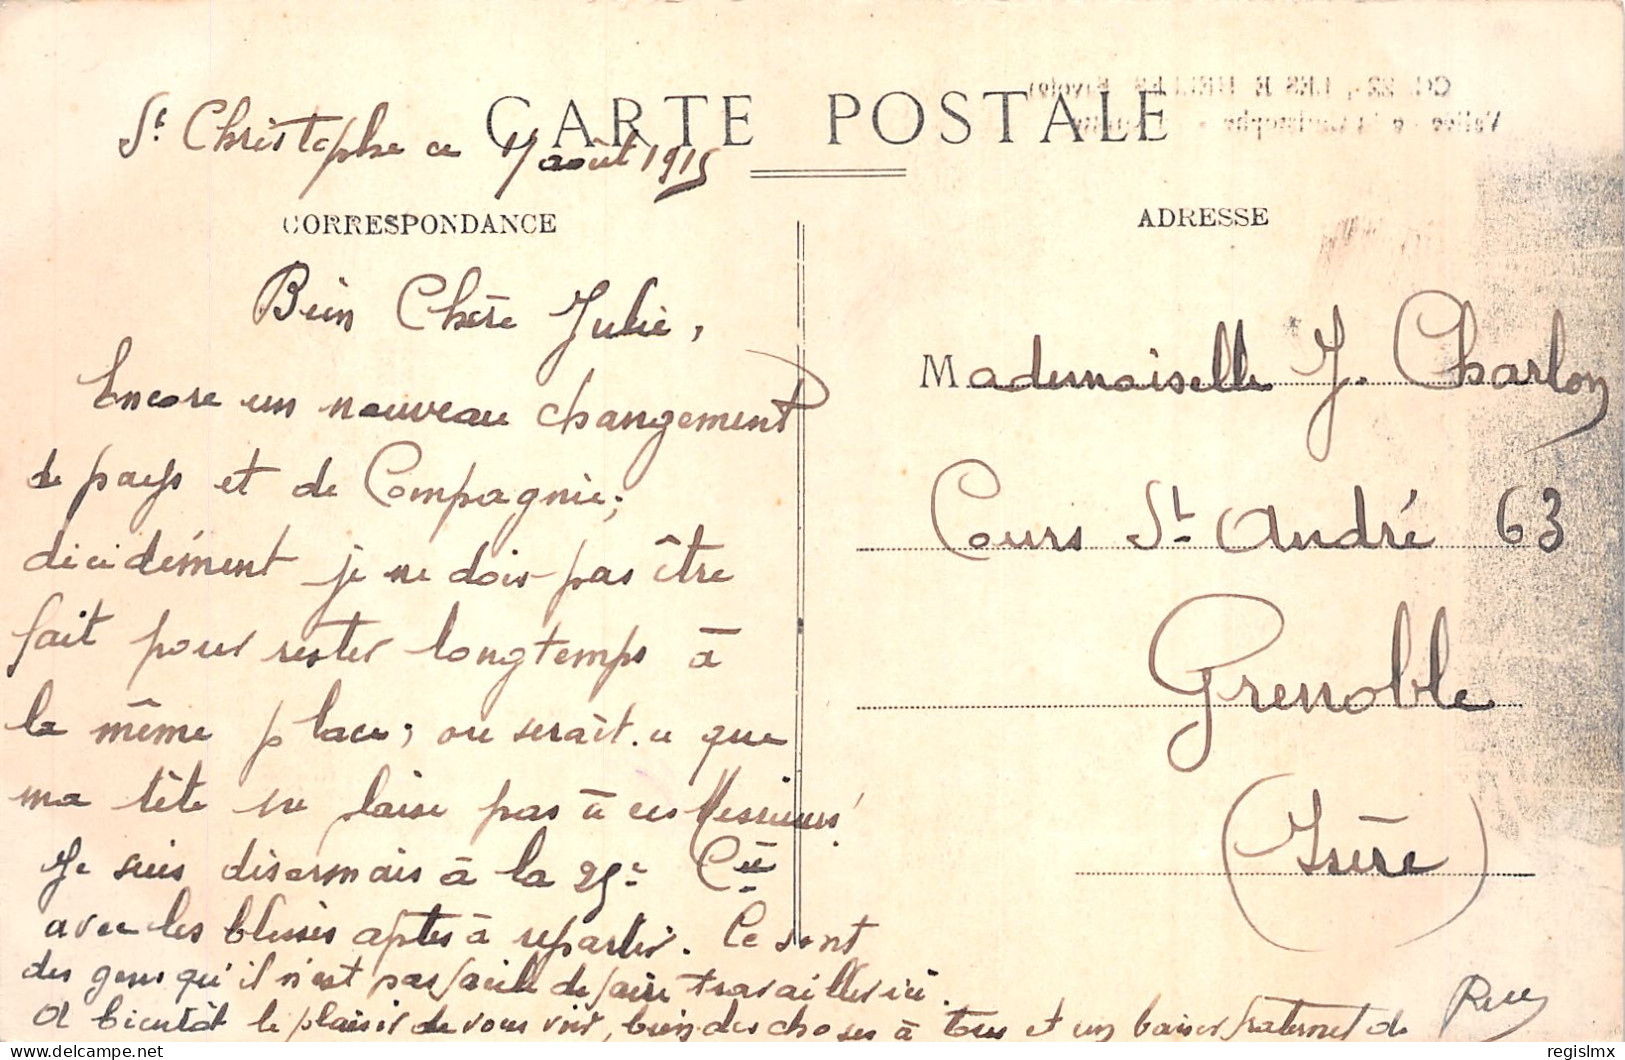 CARTE POSTALE
St Christophe ce août 1915
CORRESPONDANCE
Bien Chère Julie,
Encore un nouveau changement
de pays et de Compagnie;
décidément je ne dois pas être
fait pour rester longtemps à
la même place; ou serait-ce que
ma tête ne plaise pas à ces Messieurs!
Je suis désormais à la 25e Cie
avec les blessés aptes à repartir. Ce sont
des gens qu'il n'est pas facile de faire travailler ici.
A bientôt le plaisir de vous voir, bien des choses à tous et un baiser fraternel de
ADRESSE
Mademoiselle J. Charlon
Cours St André 63
Grenoble
(Isère)
regislmx
delcampe.net